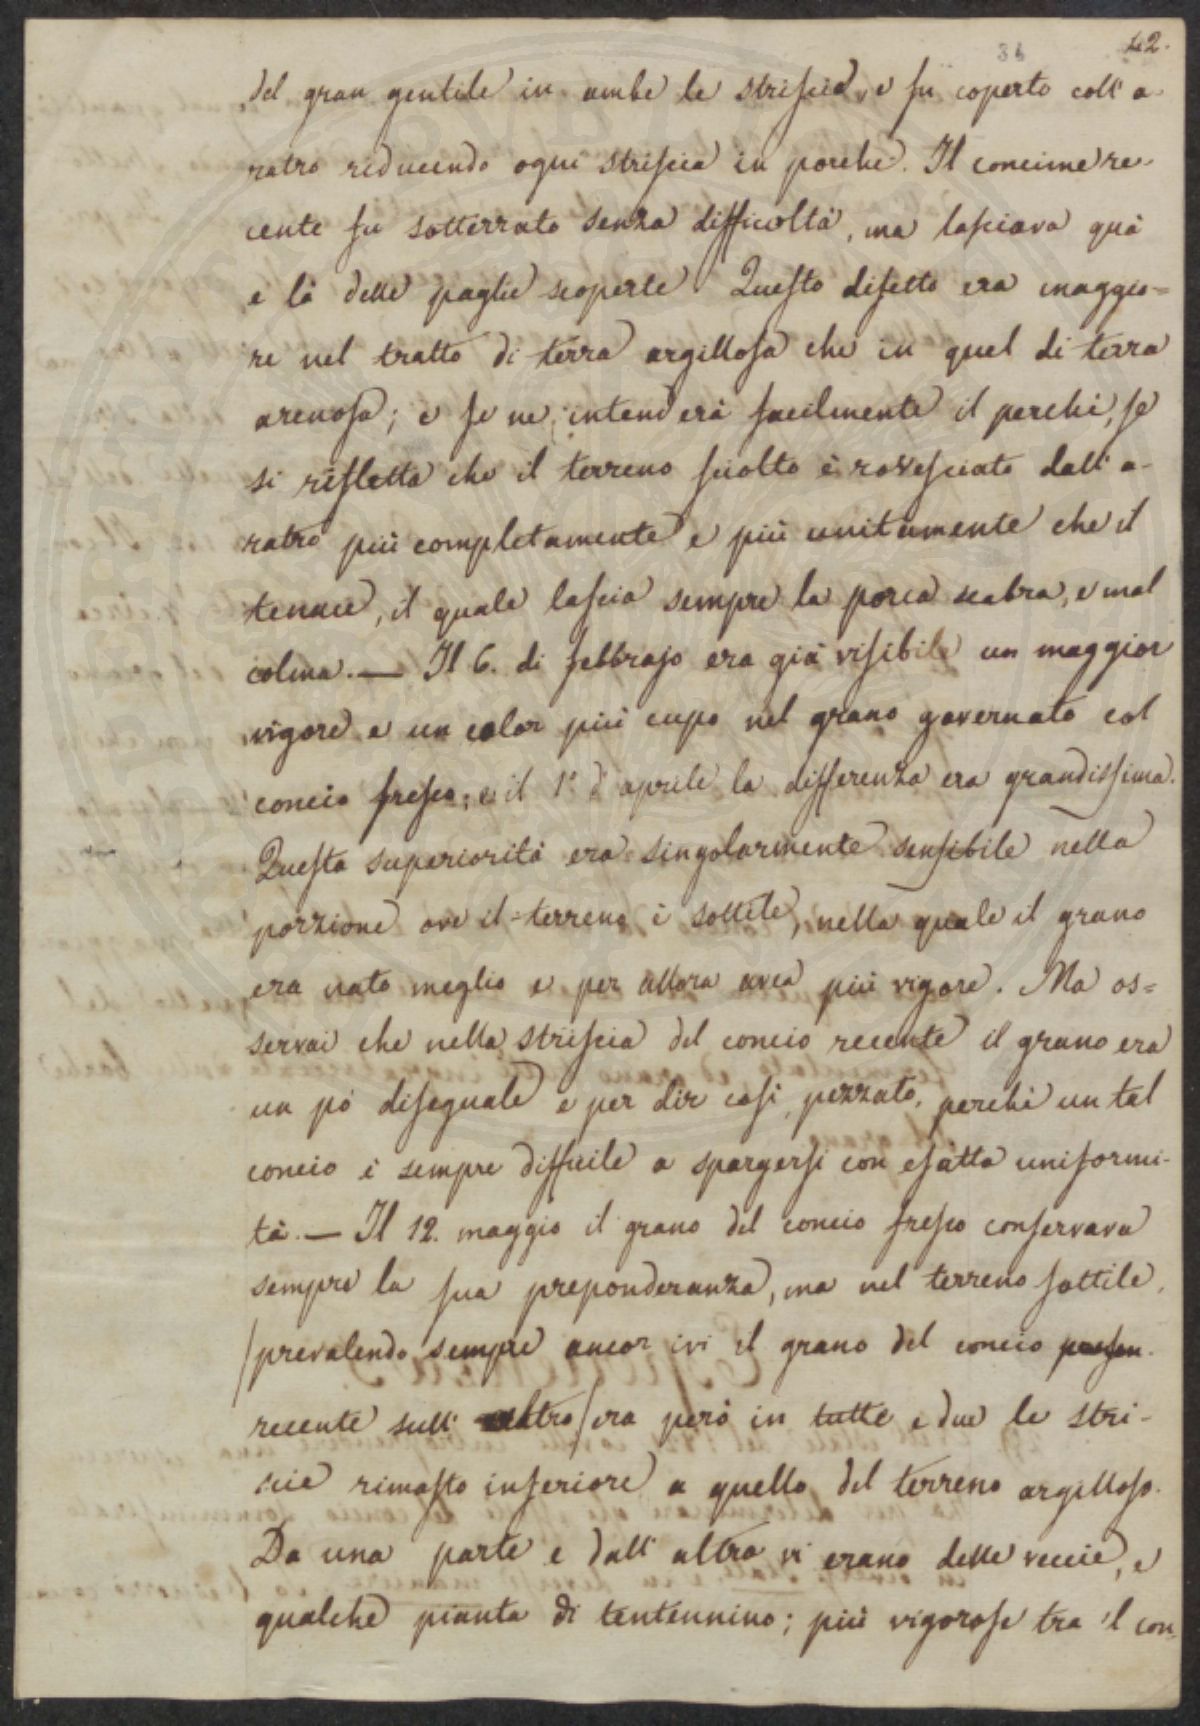 36
42.
del gran gentile in ambe le strifcie, e fu coperto coll'a-
ratro riducendo ogni strifcia in porche. Il concime re-
cente fu sotterrato senza difficoltà, ma lafciava quà
e là delle paglie scoperte. Quefto difetto era maggio=
re nel tratto di terra argillofa che in quel di terra
arenofa; e fe ne intenderà facilmente il perchè, fe
si rifletta che il terreno fciolto è rovefciato dall'a-
ratro più completamente e più unitamente che il
tenace, il quale lafcia sempre la porca scabra, e mal
colma. — Il 6. di febbrajo era già vifibile un maggior
vigore e un color più cupo nel grano governato col
concio frefco, e il 1.° d'aprile la differenza era grandifsima.
Quefta superiorità era singolarmente senfibile nella
porzione ove il terreno è sottile, nella quale il grano
era nato meglio e per allora avea più vigore. Ma os=
servai che nella strifcia del concio recente il grano era
un pò difeguale e per dir cofi pezzato, perchè un tal
concio è sempre difficile a spargerfi con efatta uniformi-
tà. — Il 12. maggio il grano del concio frefco confervava
sempre la fua preponderanza, ma nel terreno fottile,
/prevalendo sempre ancor ivi il grano del concio
recente sull' altro/ era però in tutte e due le stri-
scie rimafto inferiore a quello del terreno argillofo.
Da una parte e dall'altra vi erano delle veccie, e
qualche pianta di tentennino; più vigorofe tra 'l con-